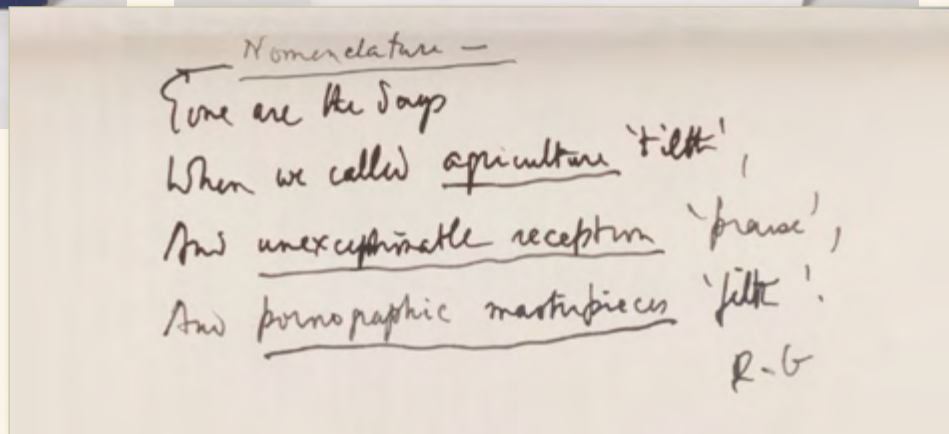 Nomenclature —
Gone are the days
When we called agriculture 'tilth',
And unexceptionable reception 'praise',
And pornographic masterpieces 'filth'.
R-G